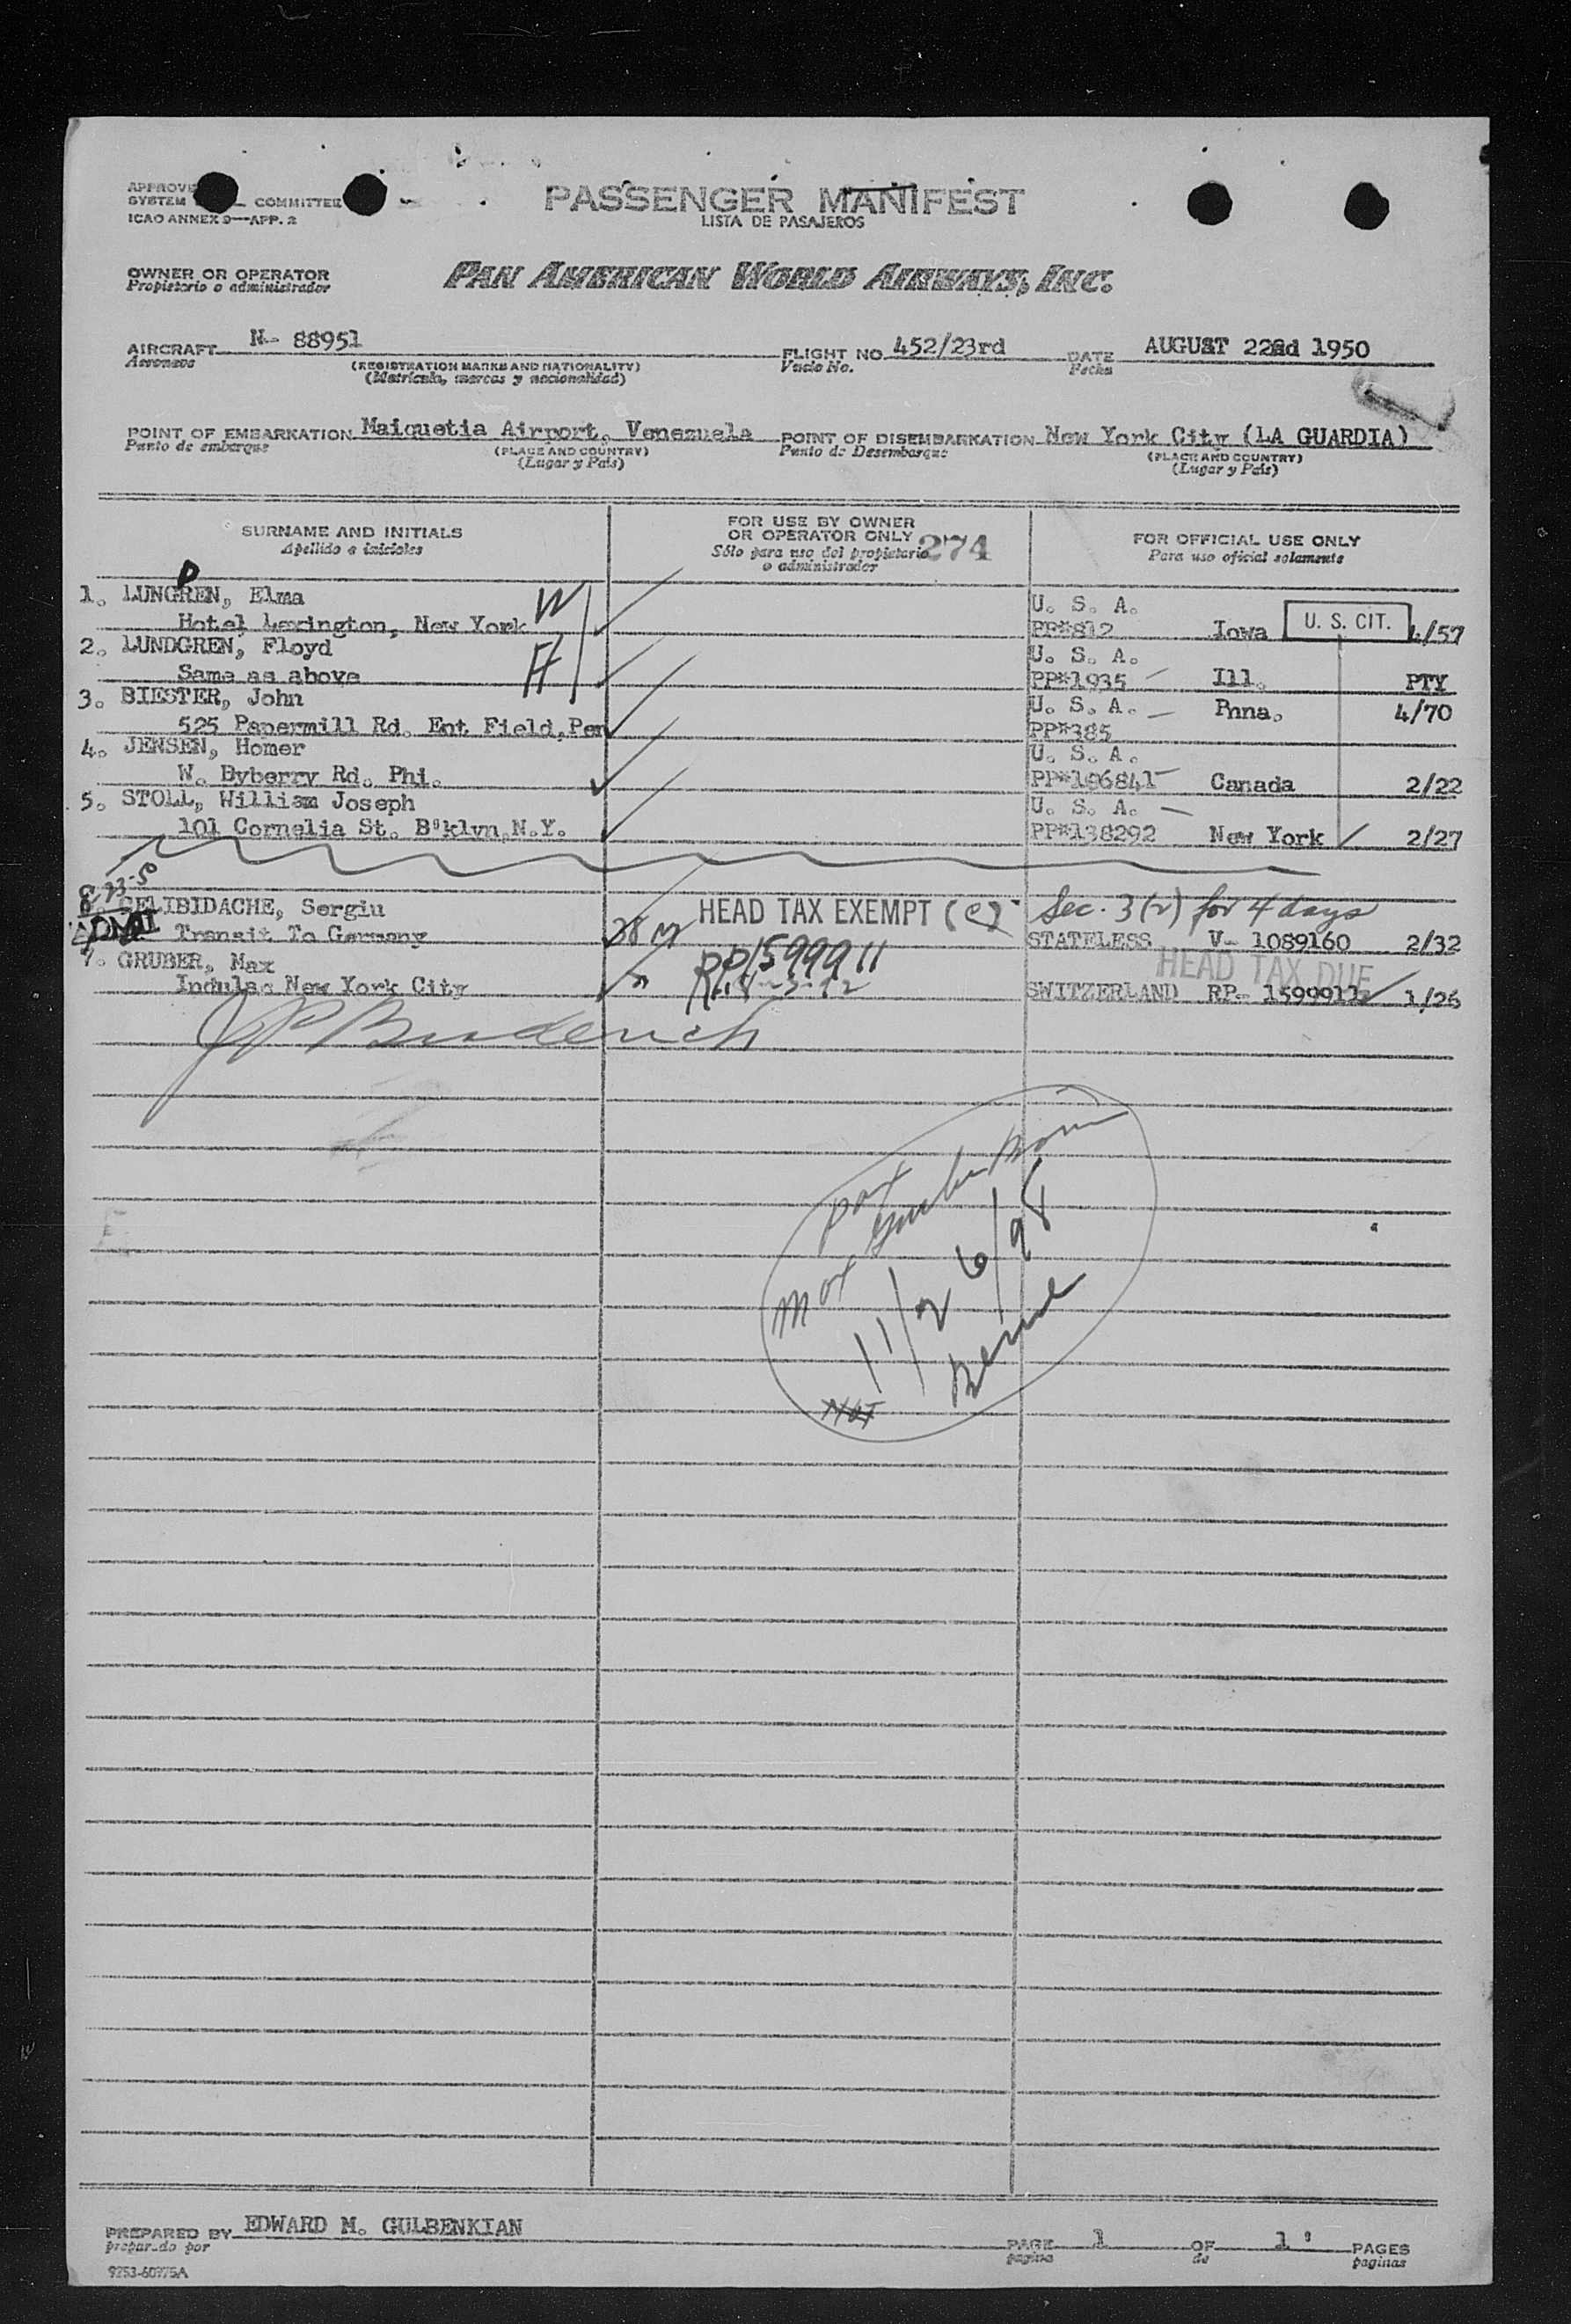 PASSENGER MANIFEST
LISTA DE PASAJEROS
APPROVE
SYSTEM COMMITTEE
ICAO ANNEX 9—APP. 2
OWNER OR OPERATOR
Propietario o administrador
PAN AMERICAN WORLD AIRWAYS, INC.
AIRCRAFT N- 88951 FLIGHT NO. 452/23rd DATE AUGUST 22nd 1950
Aeronave (REGISTRATION MARKS AND NATIONALITY) Vuelo No. Fecha
(Matrícula, marcas y nacionalidad)
POINT OF EMBARKATION Maiquetia Airport, Venezuela POINT OF DISEMBARKATION New York City (LA GUARDIA)
Punto de embarque (PLACE AND COUNTRY) Punto de Desembarque (PLACE AND COUNTRY)
(Lugar y País) (Lugar y País)
SURNAME AND INITIALS
Apellido e iniciales
FOR USE BY OWNER
OR OPERATOR ONLY
Sólo para uso del propietario
o administrador
274
FOR OFFICIAL USE ONLY
Para uso oficial solamente
D
1. LUNGREN, Elma W U. S. A.
Hotel Lexington, New York PP#812 Iowa U. S. CIT. 4/57
2. LUNDGREN, Floyd H U. S. A.
Same as above PP#1935 Ill. PTY
3. BIESTER, John U. S. A. Pnna. 4/70
525 Papermill Rd. Ent Field,Pen PP#385
4. JENSEN, Homer U. S. A.
W. Byberry Rd. Phi. PP#186841 Canada 2/22
5. STOLL, William Joseph U. S. A.
101 Cornelia St. B'klyn,N.Y. PP#138292 New York 2/27
8-23-50
CELIBIDACHE, Sergiu HEAD TAX EXEMPT (e) Sec. 3(2) for 4 days
Transit To Germany 38 M STATELESS V- 1089160 2/32
7. GRUBER, Max RP1599911 HEAD TAX DUE
Indulac New York City SWITZERLAND RP- 1599911 1/26
pax
Max Gruber born
11/26/98
Berne
Not
PREPARED BY EDWARD M. GULBENKIAN
preparado por
PAGE 1 OF 1 PAGES
página de páginas
9253-60775A